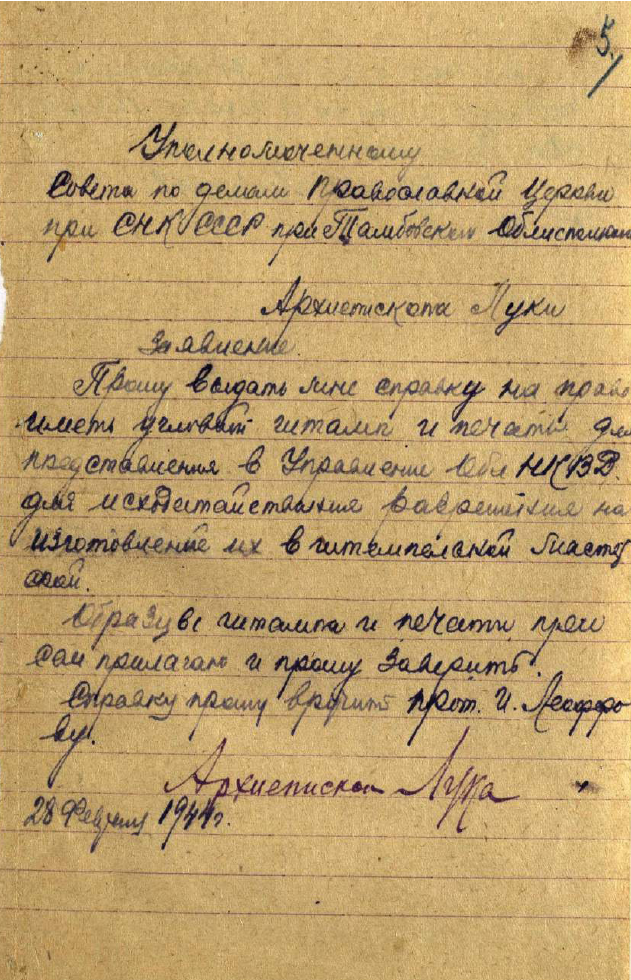 5.
Уполномоченному
Совета по делам Православной Церкви
при СНК СССР при Тамбовском Облисполком
Архиепископа Луки
Заявление.
Прошу выдать мне справку на право
иметь угловой штамп и печать для
представления в Управление Обл НКВД.
для исходатайствания разрешения на
изготовление их в штемпельской мастер
ской.
Образцы штампа и печати при
сем прилагаю и прошу заверить.
Справку прошу вручить прот. И. Леофе­ро
ву.
Архиепископ Лука
28 Февраля 1944г.